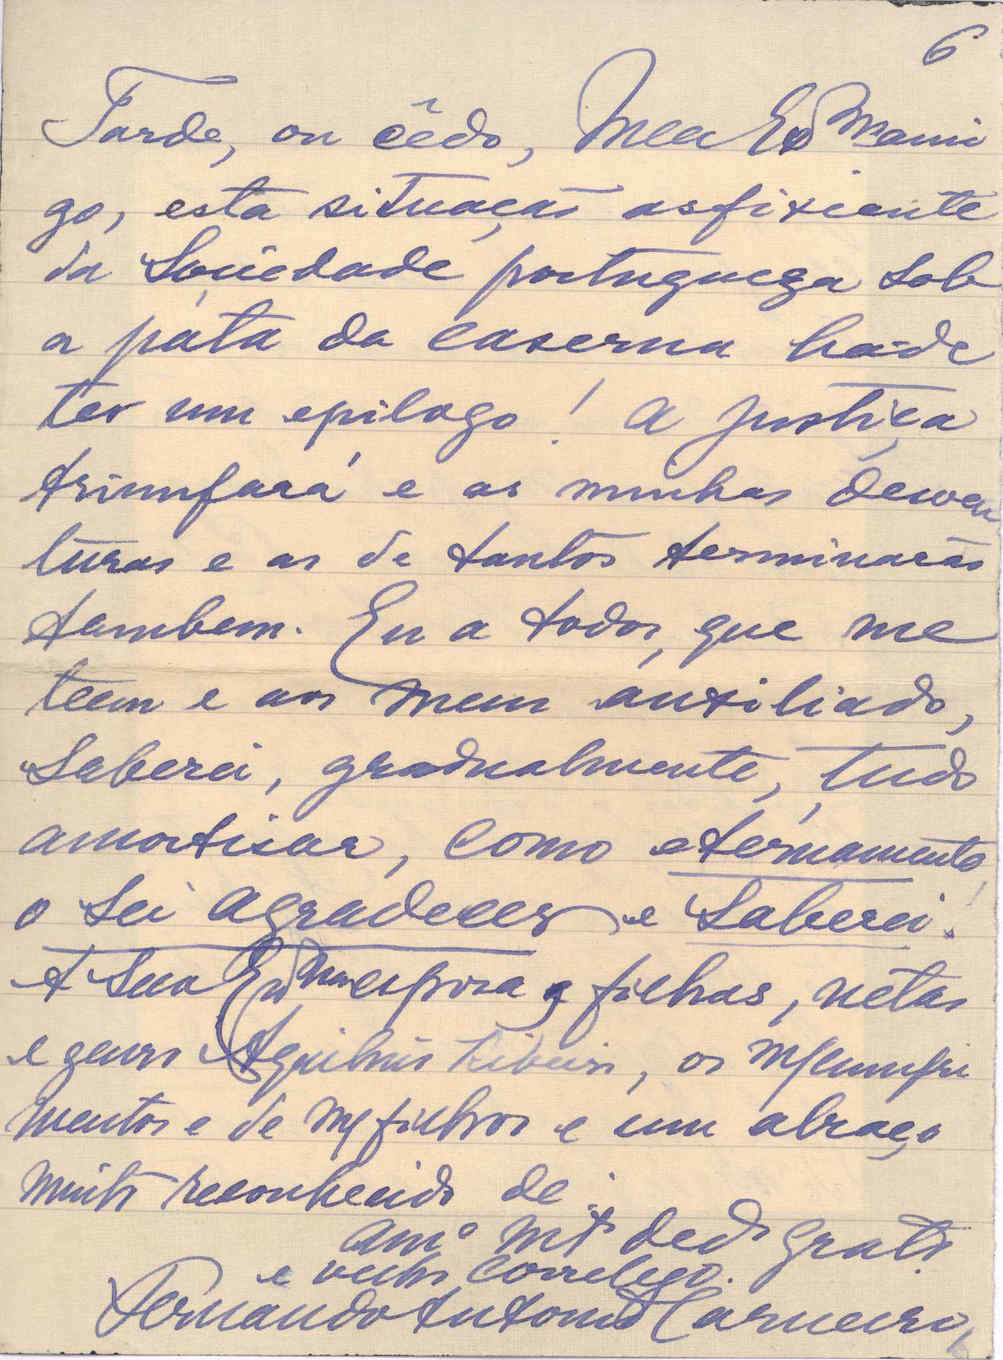 6
Tarde, ou cêdo, Meu Exmo ami
go, esta situação asfixiante
da Sociedade portugueza sob
a pata da caserna hade
ter um epilogo! A justiça
triunfará e as minhas desven
turas e as de tantos terminarão
tambem. Eu a todos, que me
teem e aos meus auxiliado,
saberei, gradualmente, tudo
amortisar, como eternamente
o sei agradecer e saberei!
A Sua Exma esposa e filhas, netas
e genro Aquilino Ribeiro, os m/cumpri
mentos e de m/filhos e um abraço
muito reconhecido de
amº mto dedo grato
e velho correlego.
Fernando Antonio Carneiro